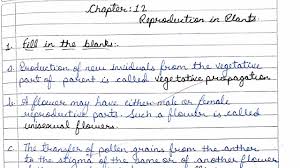 Chapter: 12
Reproduction in Plants
1. Fill in the blank:-
a. Production of new invividuals from the vegetative
part of parent is called vegetative propagation
b. A flower may have either male or female
reproductive parts. Such a flower is called
unisexual flowers.
c. The transfer of pollen grains from the anther
to the stigma of the same or of another flower